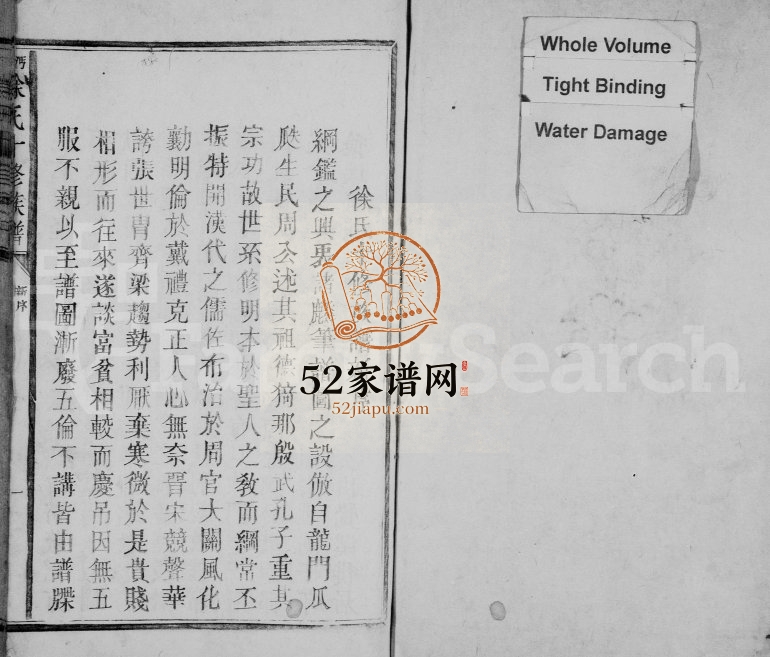 Whole Volume
Tight Binding
Water Damage
徐氏修
綱鑑之興麟筆圖之設倣自龍門瓜
瓞生民周公述其祖德猗那殷武孔子重其
宗功故世系修明本於聖人之教而綱常丕
振特開漢代之儒佐布治於周官大關風化
勸明倫於戴禮克正人心無奈晉宋競聲華
誇張世冑齊梁趨勢利厭棄寒微於是貴賤
相形而往來遂談富貧相較而慶吊因無五
服不親以至譜圖漸廢五倫不講皆由譜牒
徐氏一修族譜
新序
一
52家谱网
52jiapu.com
Search